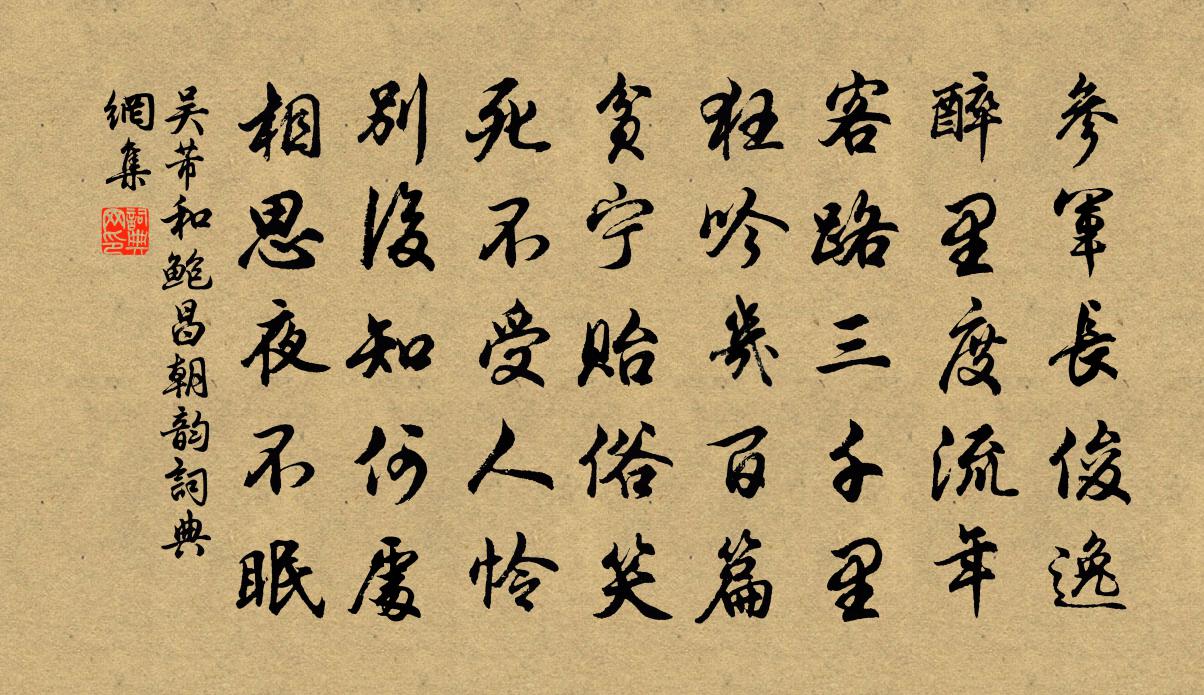 參軍長俊逸
醉里度流年
客路三千里
狂吟幾百篇
貧宁貽俗笑
死不受人怜
別後知何處
相思夜不眠
吳芾和鮑昌朝韵詞典
網集
詞典
网印